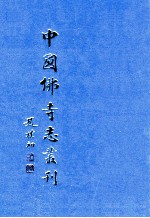 中國佛寺志叢刊